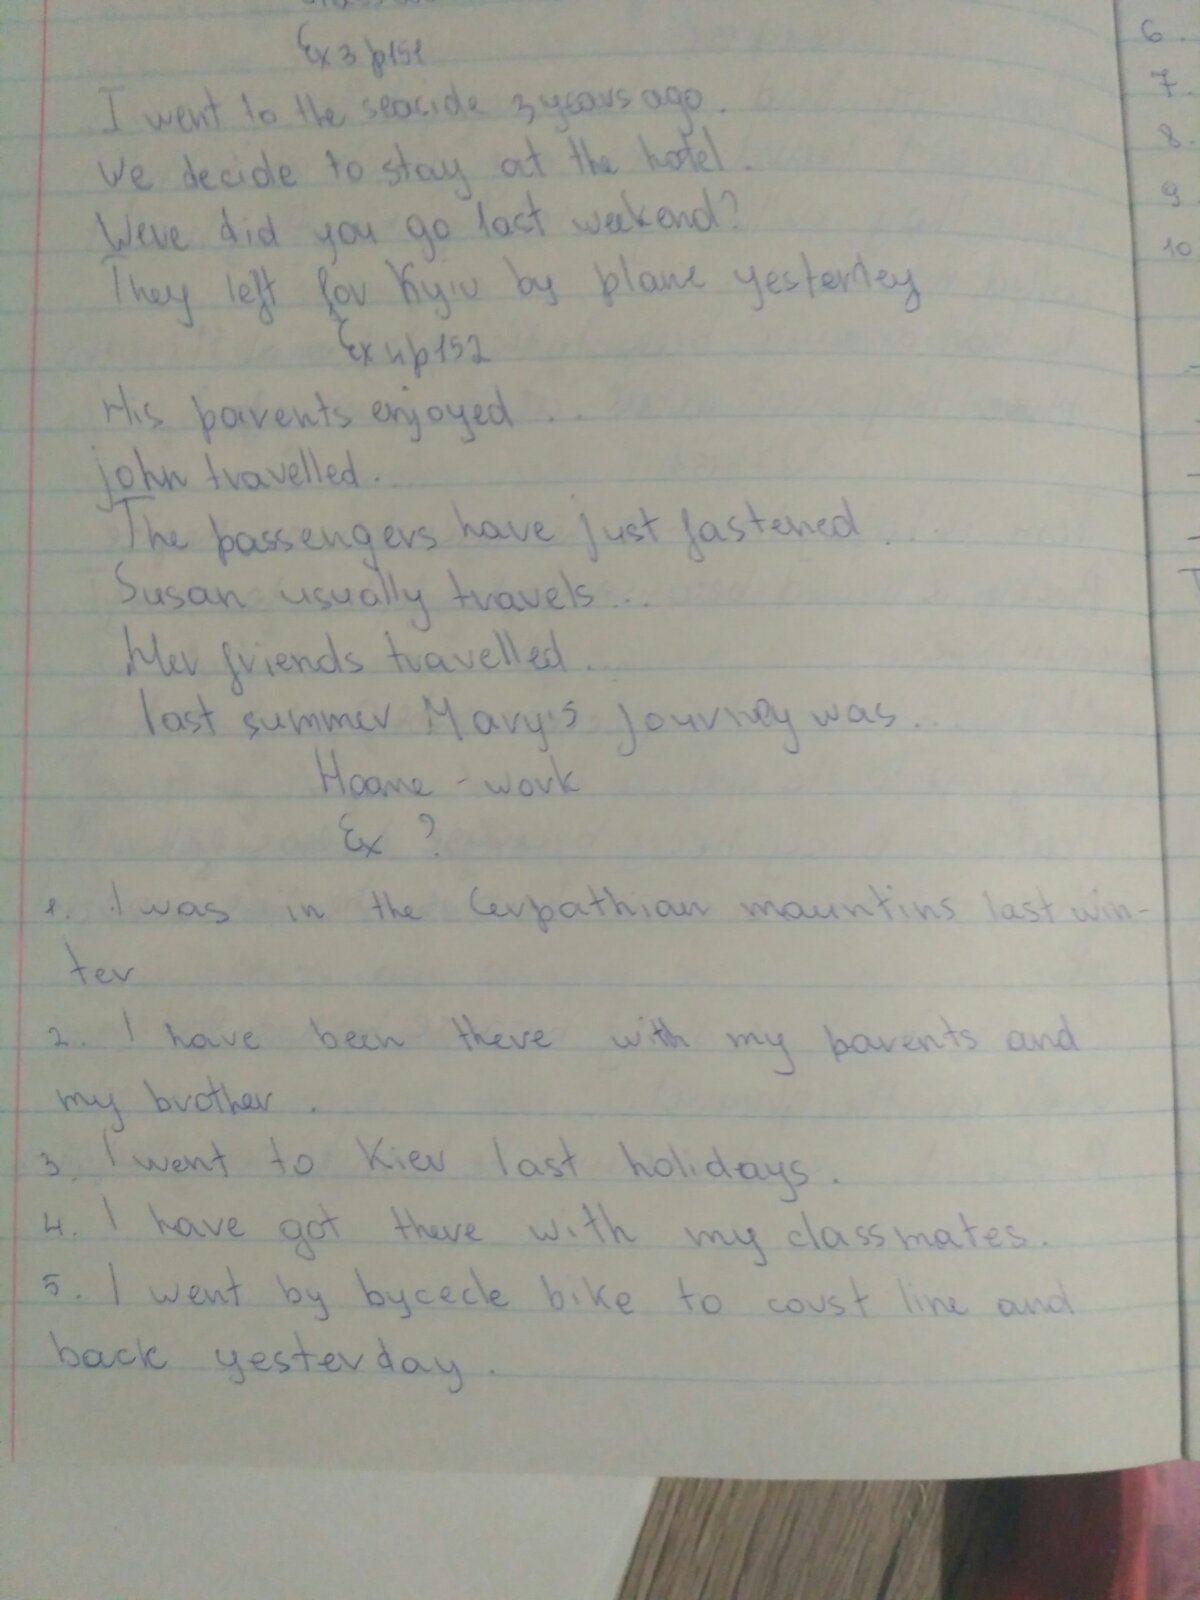 Ex 3 p151
I went to the seacide 3 years ago.
We decide to stay at the hotel.
Were did you go last weekend?
They left for Kyiv by plane yesterdey
Ex 4 p152
His parents enjoyed ...
john travelled...
The passengers have just fastened ...
Susan usually travels...
Her friends travelled...
last summer Mary's journey was...
Hoome - work
Ex ?
1. I was in the Cerpathian mauntins last win-
ter
2. I have been there with my parents and
my brother.
3. I went to Kiev last holidays.
4. I have got there with my classmates.
5. I went by bycecle bike to coust line and
back yesterday.
6.
7.
8.
9
10